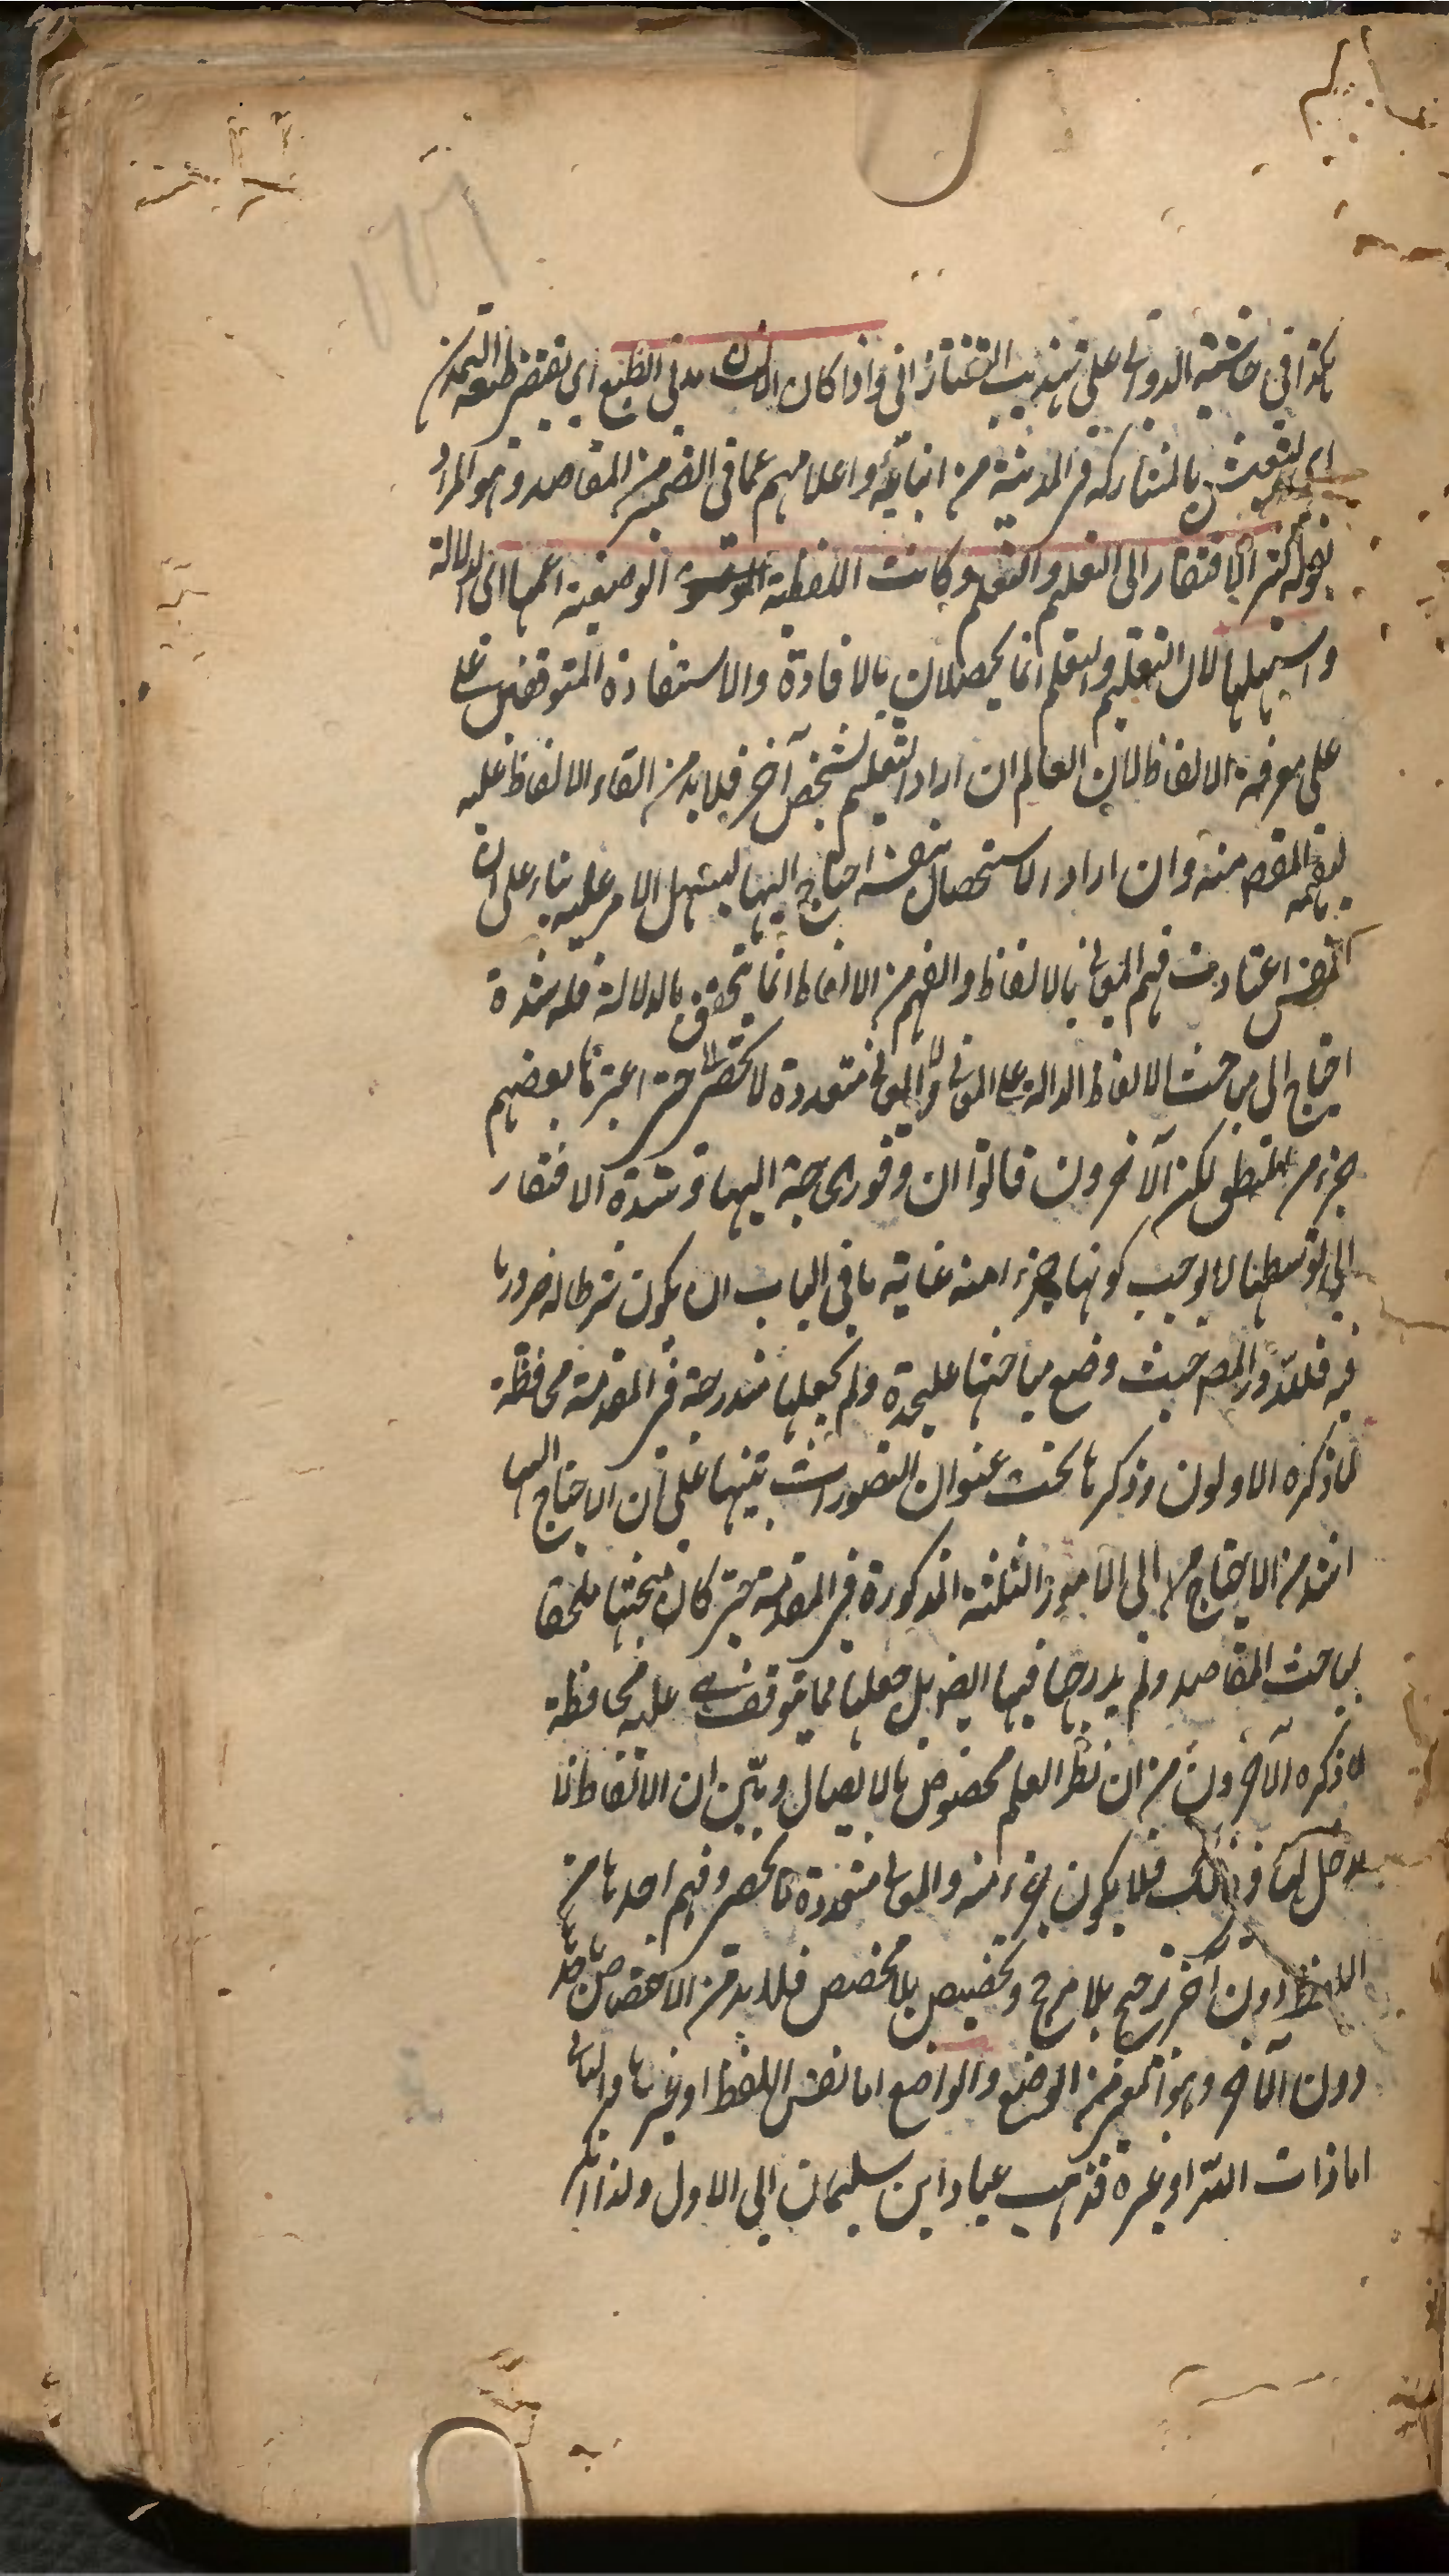 هكذا فى حاشية الدوانى على تهذيب التفتازانى واذا كان الانسان مدنى الطبع اى يقتضى طبعه التمدن
اى التعيش بالمشاركة فى المدينة من ابنائه واعلامهم عما فى الضمير من المقاصد وهو المراد
بقوله كثير الافتقار الى التعليم والتعلم وكانت اللفظية الوضعية اعمها اى الدلالة
واسهلها لان التعليم والتعلم انما يحصلان بالافادة والاستفادة المتوقفين على
على معرفة الالفاظ لان العالم ان اراد التعليم لشخص آخر فلا بد من القاء الالفاظ عليه
ليفهمه المقصد منه وان اراد الاستحصال بنفسه احتاج اليها ليسهل الامر عليه بناء على ان
النفس اعتادت فهم المعانى بالالفاظ والفهم من الالفاظ انما يتحقق بالدلالة فله شدة
احتياج الى مباحث الالفاظ الدالة على المعانى والمعانى متعددة لا تحصى حتى اعتبرها بعضهم
جزء من المنطق لكن الآخرون قالوا ان وفور الحاجة اليها وشدة الافتقار
الى توسطها لا يوجب كونها جزء امنه غاية ما فى الباب ان يكون شرطا له ضروريا
فيه فلله در المص حيث وضع مباحثها عليحدة ولم يجعلها مندرجة فى المقدمة محافظة
لما ذكره الاولون وذكرها تحت عنوان التصورات تنبيها على ان الاحتياج اليها
اشد من الاحتياج الى الامور الثلثة المذكورة فى المقدمة حتى كان مبحثها ملحقا
لمباحث المقاصد ولم يدرجها فيها ايض بل جعلها مما يتوقف عليه محافظة
لما ذكره الآخرون من ان نظر العلم مخصوص بالايصال وبين ان الالفاظ لا
مدخل لها فى ذلك فلا يكون جزء منه والمعانى متعددة لا تحصر وفهم احدها من
اللفظ دون آخر ترجيح بلا مرجح وتخصيص بلا مخصص فلا بد من الاختصاص باحد
دون الآخر وهو انما من الوضع والواضع اما نفس اللفظ او غيرها والثانى
اما ذات الله او غيره فذهب عباد ابن سليمان الى الاول ولذا انكر